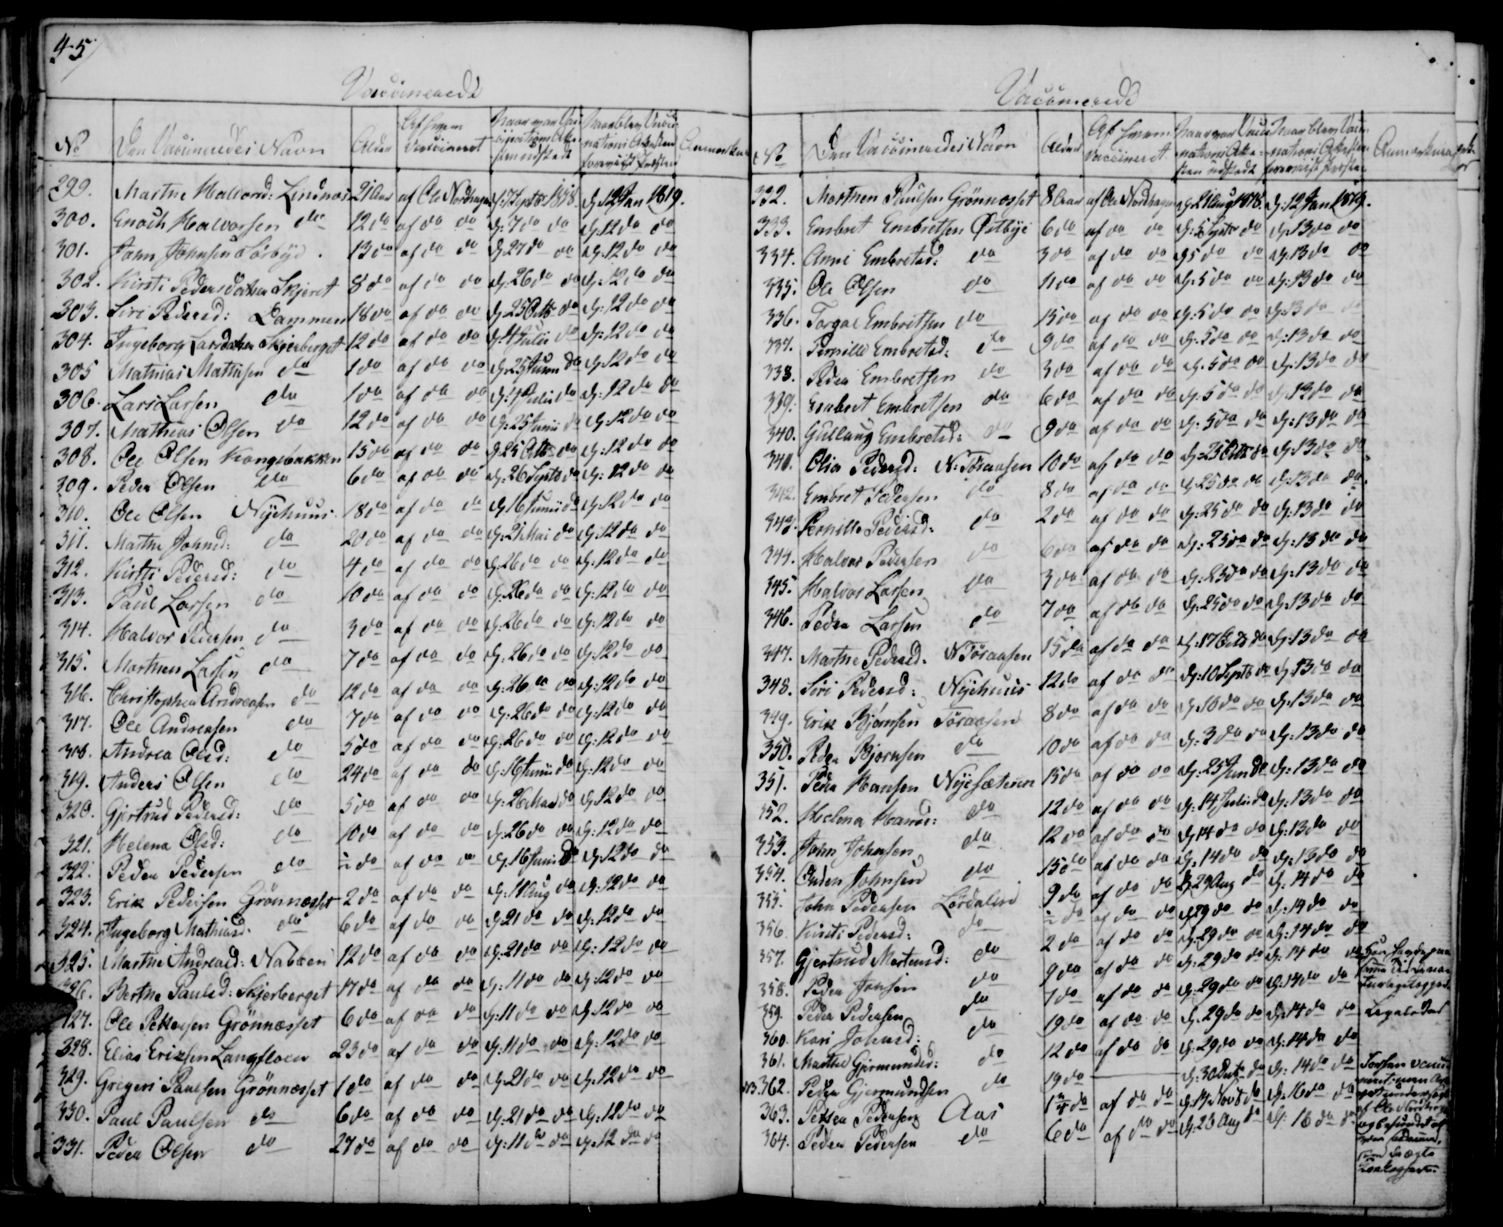 45
Vaccinerede
No
Den Vaccineredes Navn
Alder
Af hvem Vaccineret
Naar var Vaccinations Atte-
sten udstedt
Naar blev Vacci-
nations Attesten
foreviist Præsten
299. Marthe Halvord: Lindnæs 21 Aar af Ole Nordhagen d: 17 Septbr 1818 d: 12 Jan 1819.
300. Enoch Halvorsen do 12 do af do do d: 7 do do d: 12 do do
301. John Johnsen Sörbÿd. 13 do af do do d: 27 do do d: 12 do do
302. Kirsti Pedersdatter Skjeret 8 do af do do d: 26 do do d: 12 do do
303. Siri Pedersd: Dammen 18 do af do do d: 25 Octb: do d: 12 do do
304. Ingeborg Larsdatter Skjerberget 12 do af do do d: 4 Julii do d: 12 do do
305 Mathias Mathisen do 1 do af do do d: 25 Juni do d: 12 do do
306. Lars Larsen do 1 do af do do d: Julii do d: 12 do do
307. Mathias Olsen do 12 do af do do d: 25 Junii do d: 12 do do
308. Ole Olsen Kongsbakken 15 do af do do d: 25 Octb: do d: 12 do do
309. Peder Olsen do 6 do af do do d: 26 Septb do d: 12 do do
310. Ole Olsen Nÿehuus 18 do af do do d: 16 Junii do d: 12 do do
311. Marthe Johnsd: do 20 do af do do d: 21 Mai do d: 12 do do
312. Kirsti Pedersd: do 4 do af do do d: 26 do do d: 12 do do
313. Paul Larsen do 10 do af do do d: 26 do do d: 12 do do
314. Halvor Pedersen do 3 do af do do d: 26 do do d: 12 do do
315. Marthen Larsen do 7 do af do do d: 26 do do d: 12 do do
316. Christopher Andreasen do 12 do af do do d: 26 do do d: 12 do do
317. Ole Andreasen do 7 do af do do d: 26 do do d: 12 do do
318. Andrea Olsd: do 5 do af do do d: 26 do do d: 12 do do
319. Anders Olsen do 24 do af do do d: 16 Junii do d: 12 do do
320. Gjertrud Pedersd: do 5 do af do do d: 26 Mai do d: 12 do do
321. Helena Olsd: do 10 do af do do d: 26 do do d: 12 do do
322. Peder Pedersen do ½ do af do do d: 16 Juni do d: 12 do do
323. Erik Pedersen Grönnæsset 2 do af do do d: 11 Aug do d: 12 do do
324. Ingeborg Mathiasd. do 6 do af do do d: 21 do do d: 12 do do
325. Marthe Andreasd: Nabben 12 do af do do d: 21 do do d: 12 do do
326. Berthe Paulsd: Skjerberget 17 do af do do d: 11 do do d: 12 do do
327. Ole Pettersen Grönnæsset 6 do af do do d: 11 do do d: 12 do do
328. Elias Eriksen Langfloen 23 do af do do d: 11 do do d: 12 do do
329. Gregers Paulsen Grönnæsset 1 do af do do d: 21 do do d: 12 do do
330. Paul Paulsen do 6 do af do do d: 21 do do d: 12 do do
331. Peder Olsen do 27 do af do do d: 11 do do d: 12 do do
Vaccinerede
No
Den Vaccineredes Navn
Alder
Af hvem Vaccineret
Naar var Vacci-
nations Atte-
sten udstedt
Naar blev Vacci-
nations Attesten
foreviist Præsten
332. Marthen Paulsen Grönnæsset 8 Aar af Ole Nordhagen d: 21 Aug 1818. d: 12 Jan 1819.
333. Embret Embretsen Östbÿe 6 do af do do d: 5 Septb do d: 13 do do
334. Anne Embretsd: do 3 do af do do d 5 do do d: 13 do do
335. Ole Olsen do 11 do af do do d: 5 do do d: 13 do do
336. Torgal Embretsen do 15 do af do do d: 5 do do d: 13 do do
337. Pernille Embretsd: do 9 do af do do d: 5 do do d: 13 do do
338. Peder Embretsen do 3 do af do do d: 5 do do d: 13 do do
339. Embret Embretsen do 6 do af do do d: 5 do do d: 13 do do
340. Gullaug Embretsd: do 9 do af do do d: 5 do do d: 13 do do
341. Olia Pedersd: N: Töraasen 10 do af do do d: 25 Octb do d: 13 do do
342. Embret Pedersen do 8 do af do do d: 25 do do d: 13 do do
343. Pernille Pedersd: do 2 do af do do d: 25 do do d: 13 do do
344. Halvor Pedersen do 6 do af do do d: 25 do do d: 13 do do
345. Halvor Larsen do 3 do af do do d: 25 do do d: 13 do do
346. Peder Larsen do 7 do af do do d: 25 do do d: 13 do do
347. Marthe Pedersd. N Töraasen 15 do af do do d: 17 do d: 13 do do
348. Siri Pedersd: Nÿehuus 12 do af do do d: 10 Septb do d: 13 do do
349. Erik Björnsen Töraasen 8 do af do do d: 10 do do d: 13 do do
350. Peder Bjornsen do 10 do af do do d: 3 do do d: 13 do do
351. Peder Hansen Nÿesæteren 15 do af do do d: 25 Jun do d: 13 do do
352. Helena Hansd: do 12 do af do do d: 14 Julii do d: 13 do do
353. John Johnsen do 12 do af do do d: 14 do do d: 13 do do
354. Peder Johnsen do 15 do af do do d: 14 do do d: 13 do do
355. John Pedersen Lördalen 9 do af do do d: 29 Aug do d: 14 do do
356. Kirsti Pedersd: do ½ do af do do d: 29 do do d: 14 do do
357. Gjertrud Mortensd: do 2 do af do do d: 29 do do d: 14 do do
358. Peder Jonsen do 9 do af do do d: 29 do do d: 14 do do
359. Peder Pedersen do 1 do af do do d: 29 do do d: 14 do do
360. Kari Johnsd: do 19 do af do do d: 29 do do d: 14 do do
361. Marthe Gjermundsd: do 12 do af do do d: 29 do do d: 14 do do
362. Peder Gjermundsen do 19 do d: 30 do d: 14 do do
363. Petter Pedersen Aas 1¾ do af do do d: 14 Novb do d: 16 do do
364. Peder Pedersen do 6 do af do do d: 23 Aug do d: 16 do do